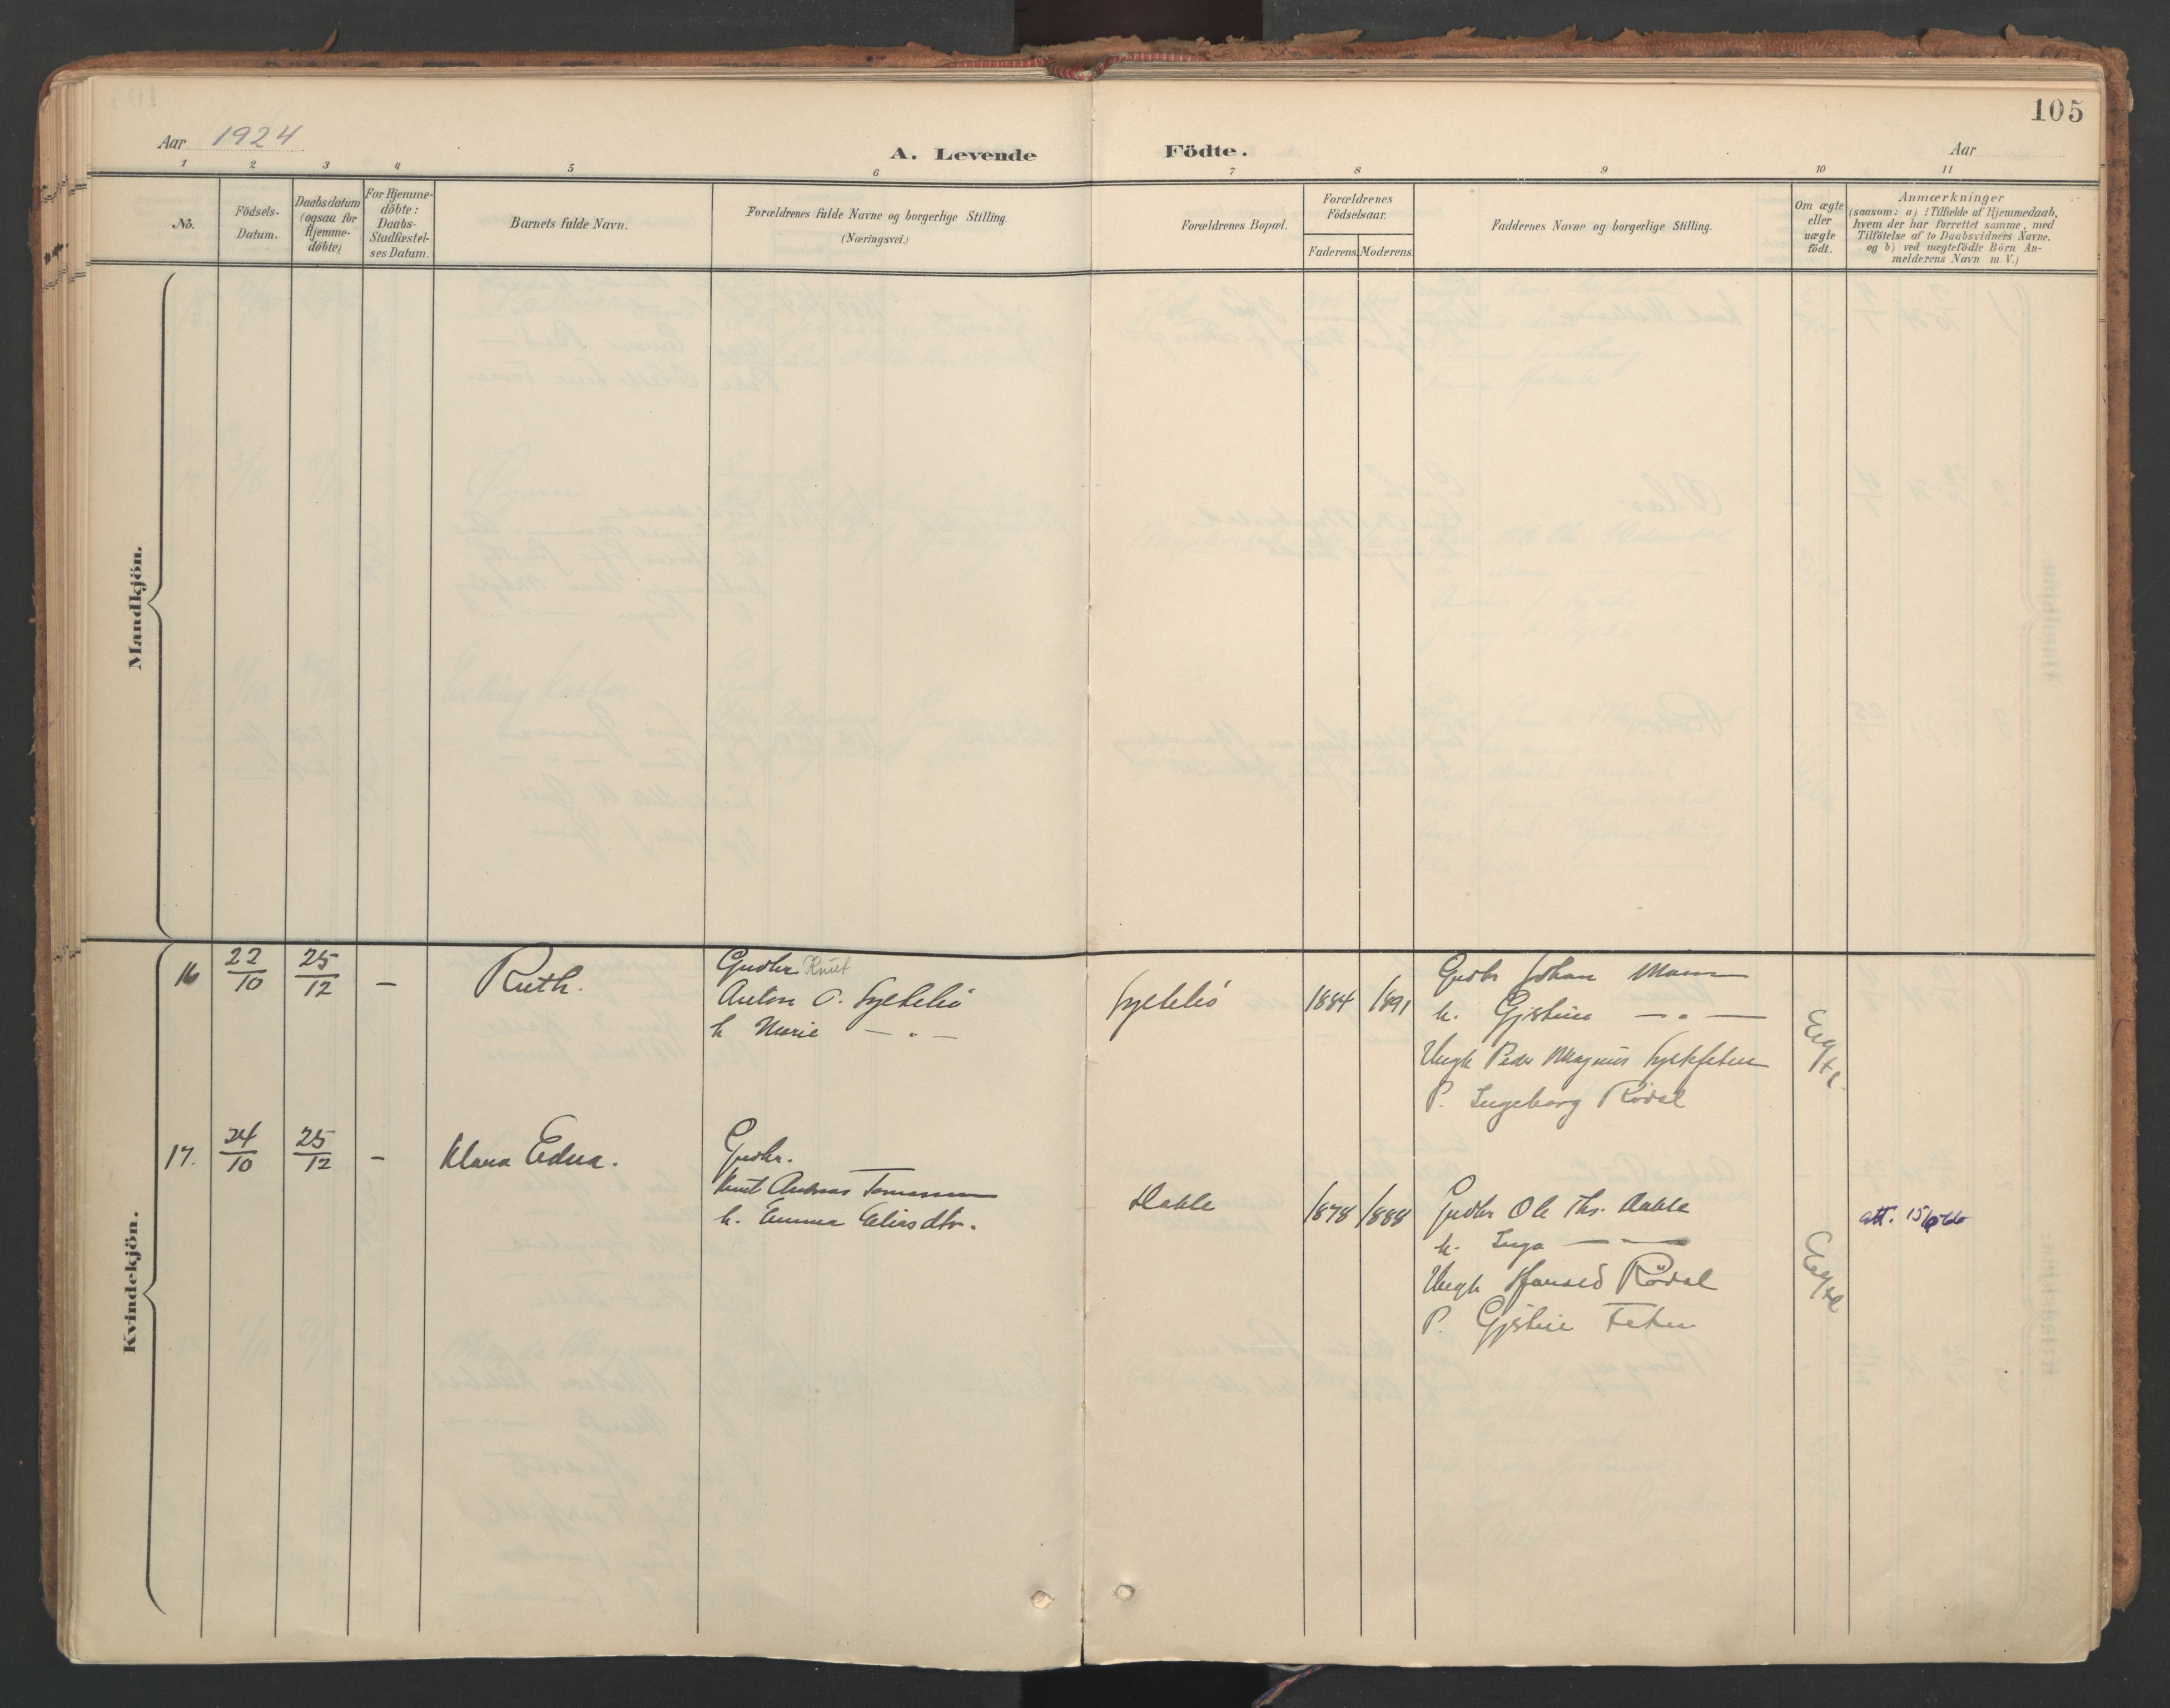 105
Aar 1924
A. Levende Födte.
Aar
1 2 3 4 5 6 7 8 9 10 11
No.
Födsels-
Datum.
Daabsdatum
(ogsaa for
Hjemme-
döbte)
For Hjemme-
döbte:
Daabs-
Stadfæstel-
ses Datum.
Barnets fulde Navn.
Forældrenes fulde Navne og borgerlige Stilling.
(Næringsvei.)
Forældrenes Bopæl.
Forældrenes
Födselsaar.
Faderens. Moderens.
Faddernes Navne og borgerlige Stilling.
Om ægte
eller
uægte
födt.
Anmærkninger
(saasom: a) : Tilfælde af Hjemmedaab,
hvem der har forrettet samme, med
Tilföielse af to Daabsvidners Navne.
og b) ved uægtefödte Börn An-
melderens Navn m. V.)
Mandkjön.
Kvindekjön.
16 22/10 25/12 — Ruth.
Gudbr. Knut
Anton O.
h Marie — „ —
1884 1891
Gudbr Johan
h. Gjertine — „ —
Ungk Peder Magnus
P. Ingeborg Rödal
Ægte.
17. 24/10 25/12 – Klara Edna.
Gudbr.
Knut Andreas Tomassen
h. Emma Eliasdtr.
Hakle
1878 1888
Gudbr Ole Ths. Hakle
h. Inga — —
Ungk Rödal
P. Gjertine
Ægte
att.